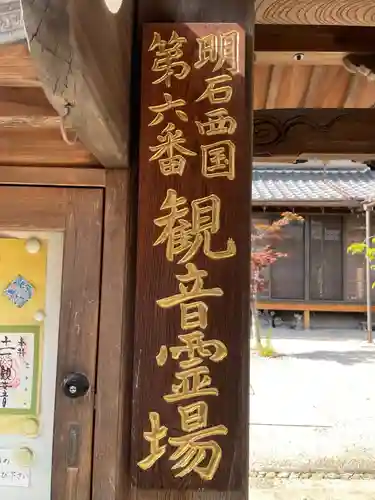 明石西国
第六番
観音霊場